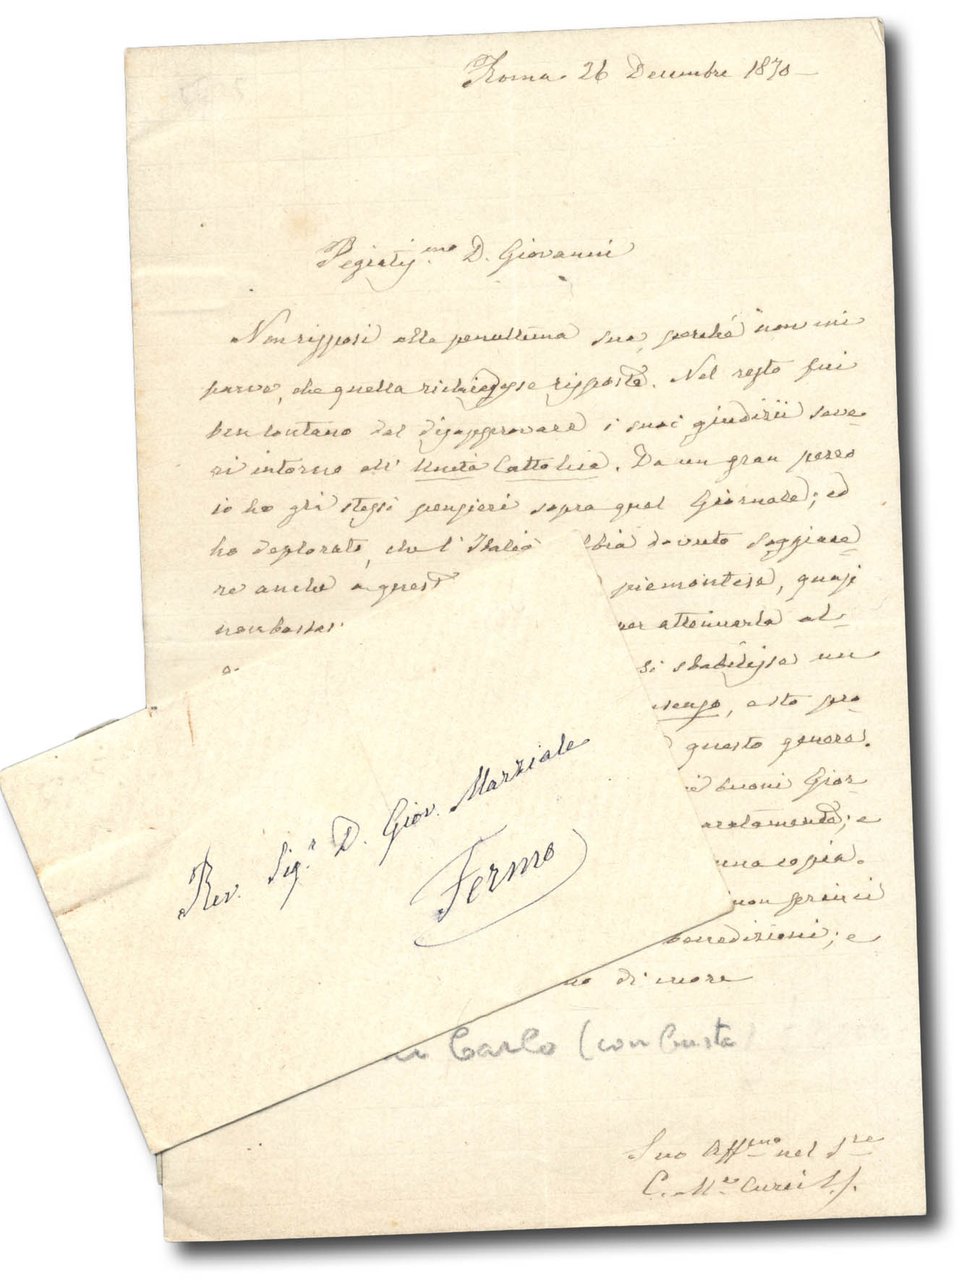 Roma 26 Decembre 1870
Pregiatis.mo D. Giovanni
Non risposi alla penultima sua, perché non mi
parve, che quella richiedesse risposta. Nel resto fui
ben lontano dal disapprovare i suoi giudizii seve-
ri intorno all' Unità Cattolica. Da un gran pezzo
io ho gli stessi pensieri sopra quel Giornale; ed
ho deplorato, che l'Italia abbia dovuto soggiace-
re anche a quest piemontese, quasi
non bastas per attenuarla al-
si stabilisse un
senso, e sto pro
questo genere.
buoni Gior-
aratamente; e
una copia.
non
benedizioni; e
no di cuore
Carlo (con busta)
Suo Aff.mo nel S.re
C. M.a Curci S.J.
Rev. Sig.r D. Giov. Marziale
Fermo